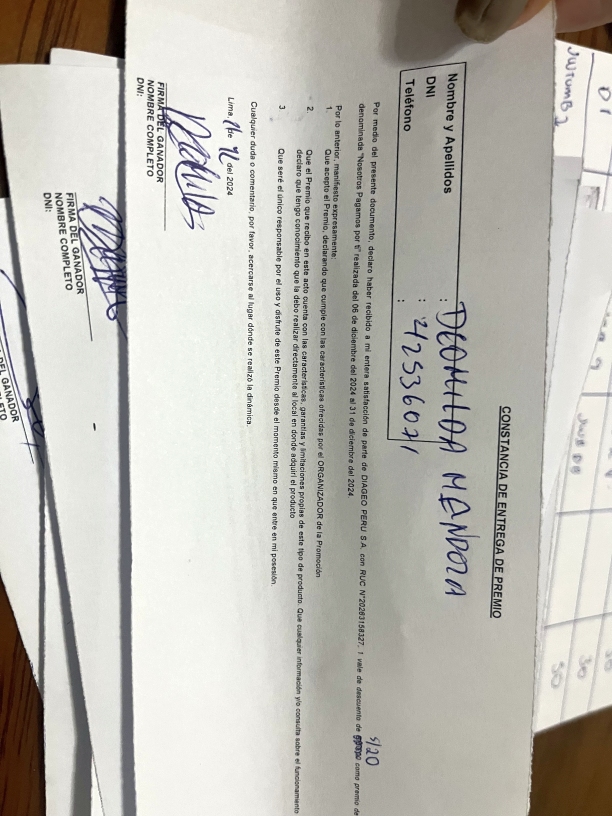 CONSTANCIA DE ENTREGA DE PREMIO
Nombre y Apellidos : DEOMILDA MENDOZA
DNI : 42536071
Teléfono :
Por medio del presente documento, declaro haber recibido a mi entera satisfacción de parte de DIAGEO PERU S.A. con RUC N°20263158327, 1 vale de descuento de S/20 como premio de
denominada "Nosotros Pagamos por ti" realizada del 06 de diciembre del 2024 al 31 de diciembre del 2024.
Por lo anterior, manifiesto expresamente:
1. Que acepto el Premio, declarando que cumple con las características ofrecidas por el ORGANIZADOR de la Promoción
2. Que el Premio que recibo en este acto cuenta con las características, garantías y limitaciones propias de este tipo de producto. Que cualquier información y/o consulta sobre el funcionamiento
declaro que tengo conocimiento que la debo realizar directamente al local en donde adquirí el producto
3 Que seré el único responsable por el uso y disfrute de este Premio desde el momento mismo en que entre en mi posesión.
Cualquier duda o comentario, por favor, acercarse al lugar dónde se realizó la dinámica.
Lima, de 12 del 2024
FIRMA DEL GANADOR
NOMBRE COMPLETO
DNI:
FIRMA DEL GANADOR
NOMBRE COMPLETO
DNI:
DEL GANADOR
30
50